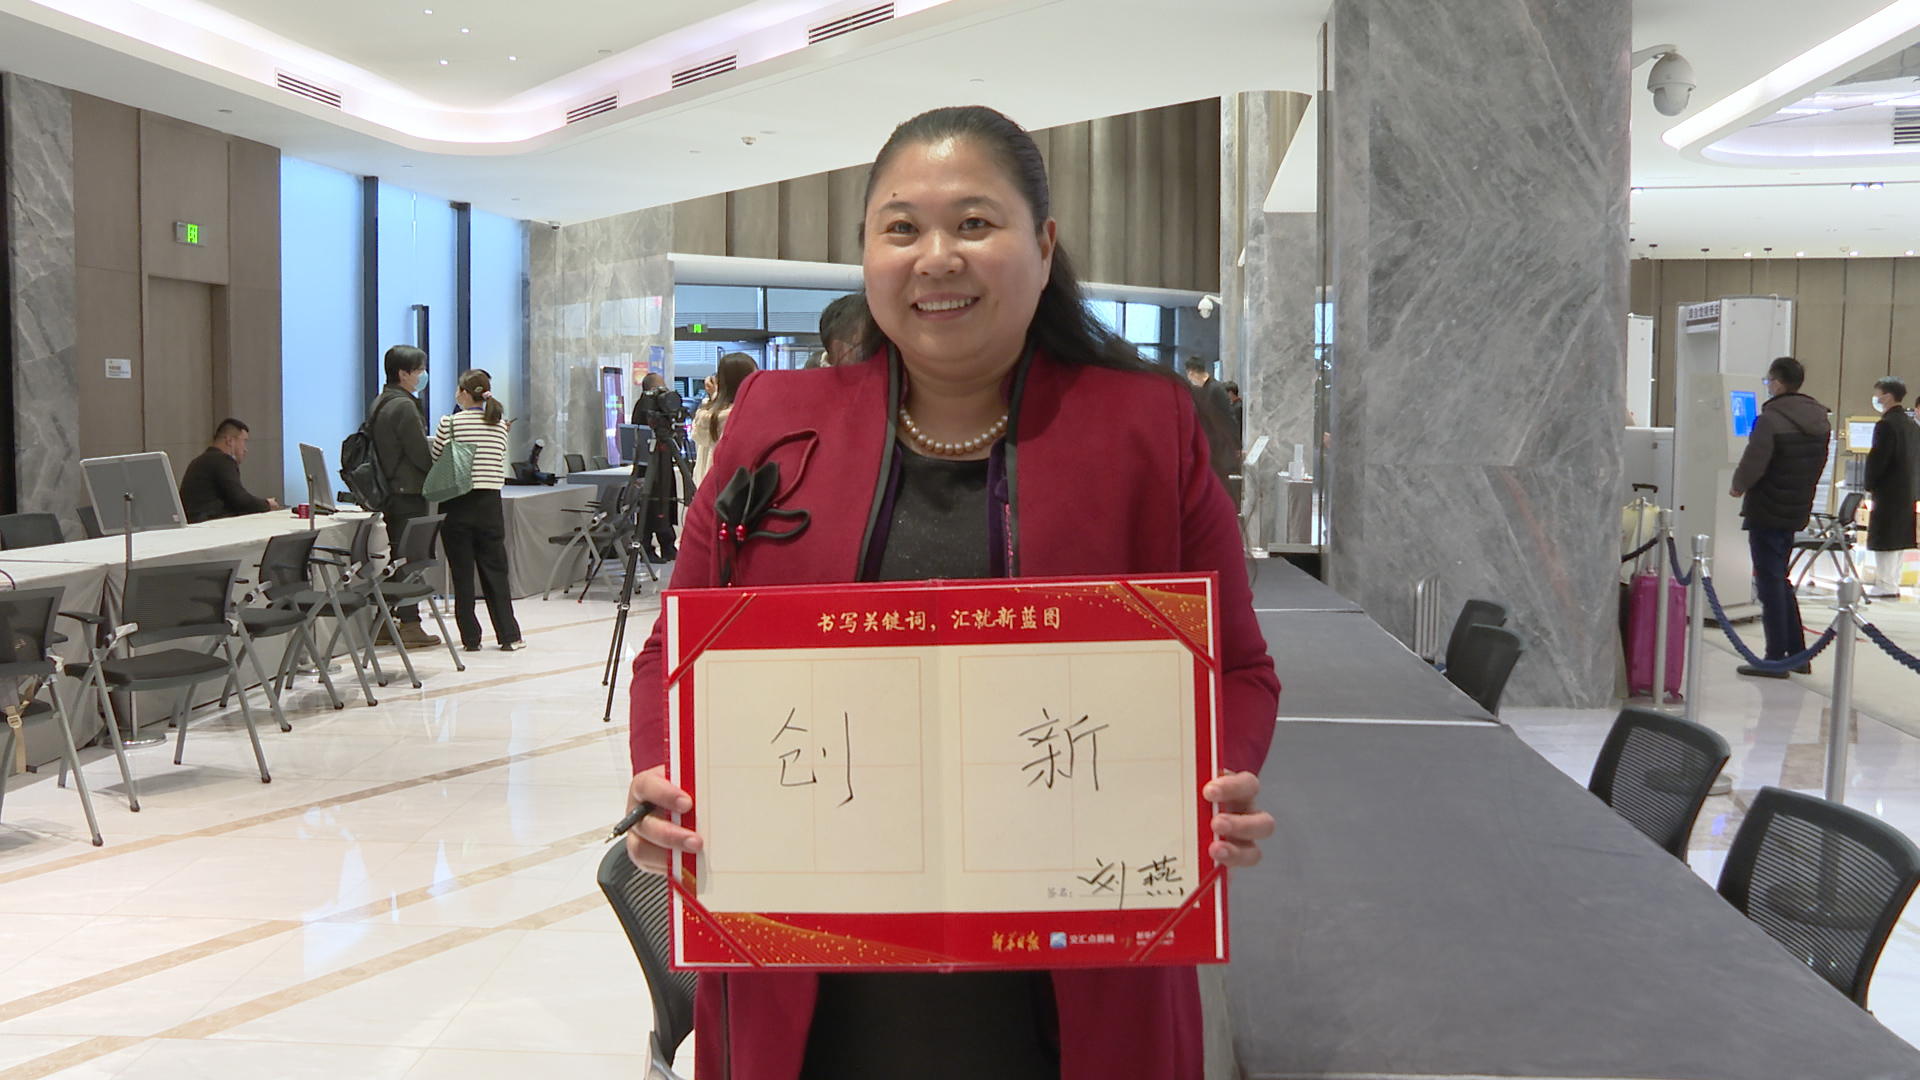 书写关键词，汇就新蓝图
创 新
签名：刘燕
新华日报 交汇点新闻